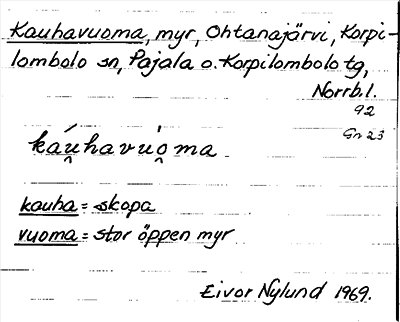 Kauhavuoma, myr, Ohtanajärvi, Korpi-
lombolo sn, Pajala o. Korpilombolo tg,
Norrb.l.
92
Gn 23
káu̯havúo̯ma
kauha = skopa
vuoma = stor öppen myr
Eivor Nylund 1969.